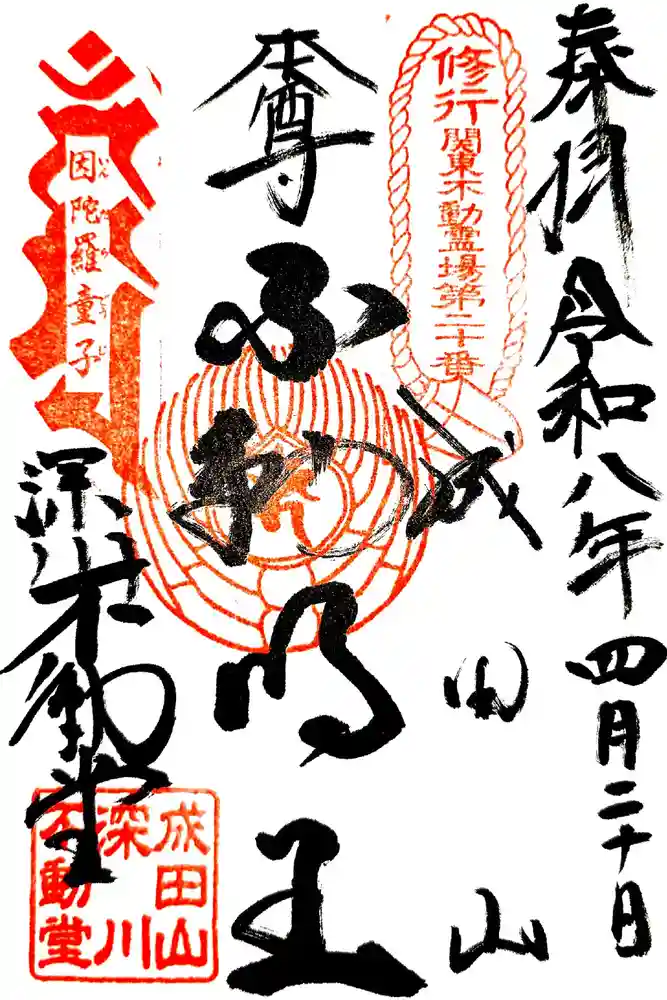 奉拝 令和八年四月二十日
修行
関東不動霊場第二十番
成田山
大聖不動明王
因陀羅童子
いんだらどうじ
深川不動堂
成田山
深川
不動堂